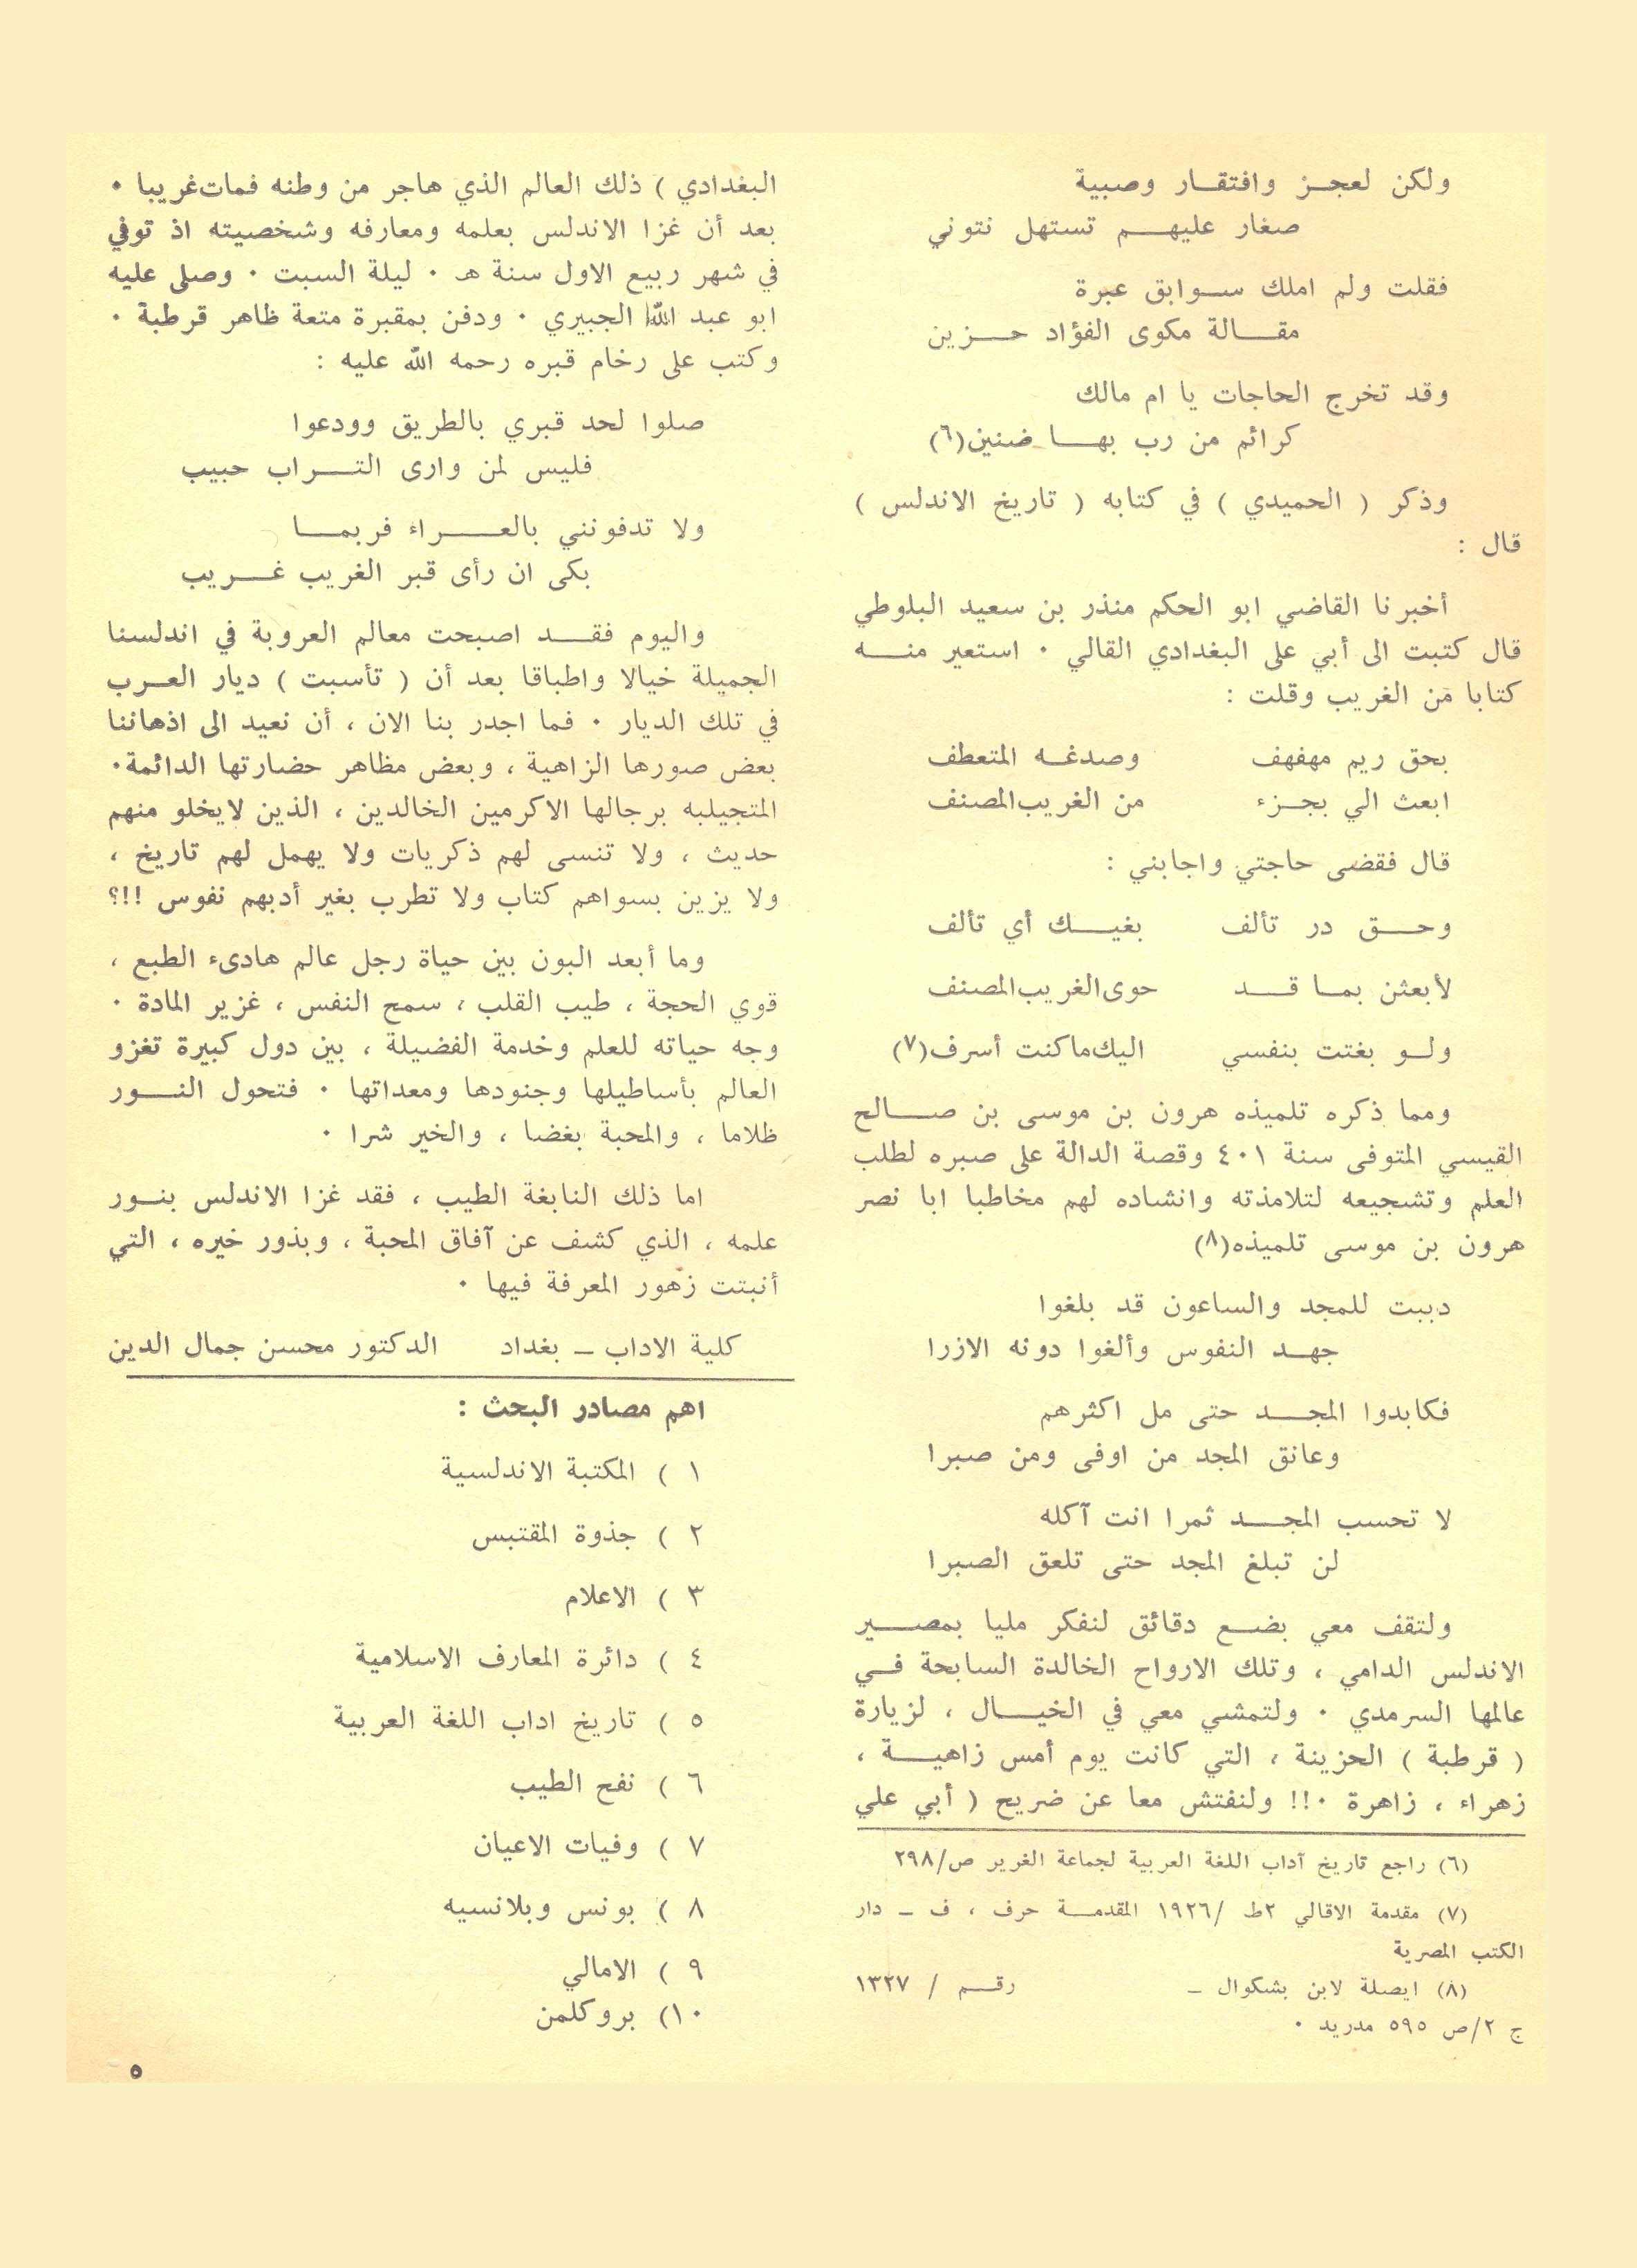 ولكن لعجز وافتقار وصبية
صغار عليهم تستهل نتوني
فقلت ولم املك سوابق عبرة
مقالة مكوى الفؤاد حزين
وقد تخرج الحاجات يا ام مالك
كرائم من رب بها ضنين(٦)
وذكر ( الحميدي ) في كتابه ( تاريخ الاندلس )
قال :
أخبرنا القاضي ابو الحكم منذر بن سعيد البلوطي
قال كتبت الى أبي على البغدادي القالي . استعير منه
كتابا من الغريب وقلت :
بحق ريم مهفهف وصدغه المتعطف
ابعث الي بجزء من الغريب المصنف
قال فقضى حاجتي واجابني :
وحق در تألف بغيك أي تألف
لأبعثن بما قد حوى الغريب المصنف
ولو بغتت بنفسي اليك ما كنت أسرف(٧)
ومما ذكره تلميذه هرون بن موسى بن صالح
القيسي المتوفى سنة ٤٠١ وقصة الدالة على صبره لطلب
العلم وتشجيعه لتلامذته وانشاده لهم مخاطبا ابا نصر
هرون بن موسى تلميذه(٨)
دببت للمجد والساعون قد بلغوا
جهد النفوس وألغوا دونه الازرا
فكابدوا المجد حتى مل اكثرهم
وعانق المجد من اوفى ومن صبرا
لا تحسب المجد ثمرا انت آكله
لن تبلغ المجد حتى تلعق الصبرا
ولتقف معي بضع دقائق لنفكر مليا بمصير
الاندلس الدامي ، وتلك الارواح الخالدة السابحة في
عالمها السرمدي . ولتمشي معي في الخيال ، لزيارة
( قرطبة ) الحزينة ، التي كانت يوم أمس زاهية ،
زهراء ، زاهرة .!! ولنفتش معا عن ضريح ( أبي علي
(٦) راجع تاريخ آداب اللغة العربية لجماعة الغرير ص/٢٩٨
(٧) مقدمة الاقالي ٢ط /١٩٢٦ المقدمة حرف ، ف ــ دار
الكتب المصرية
(٨) ايصلة لابن بشكوال ــ رقم / ١٣٢٧
ج ٢/ص ٥٩٥ مدريد .
البغدادي ) ذلك العالم الذي هاجر من وطنه فمات غريبا .
بعد أن غزا الاندلس بعلمه ومعارفه وشخصيته اذ توفي
في شهر ربيع الاول سنة هـ . ليلة السبت . وصلى عليه
ابو عبد الله الجبيري . ودفن بمقبرة متعة ظاهر قرطبة .
وكتب على رخام قبره رحمه الله عليه :
صلوا لحد قبري بالطريق وودعوا
فليس لمن وارى التراب حبيب
ولا تدفونني بالعراء فربما
بكى ان رأى قبر الغريب غريب
واليوم فقد اصبحت معالم العروبة في اندلسنا
الجميلة خيالا واطباقا بعد أن ( تأسبت ) ديار العرب
في تلك الديار . فما اجدر بنا الان ، أن نعيد الى اذهاننا
بعض صورها الزاهية ، وبعض مظاهر حضارتها الدائمة .
المتجيلبه برجالها الاكرمين الخالدين ، الذين لايخلو منهم
حديث ، ولا تنسى لهم ذكريات ولا يهمل لهم تاريخ ،
ولا يزين بسواهم كتاب ولا تطرب بغير أدبهم نفوس !!؟
وما أبعد البون بين حياة رجل عالم هادىء الطبع ،
قوي الحجة ، طيب القلب ، سمح النفس ، غزير المادة .
وجه حياته للعلم وخدمة الفضيلة ، بين دول كبيرة تغزو
العالم بأساطيلها وجنودها ومعداتها . فتحول النور
ظلاما ، والمحبة بغضا ، والخير شرا .
اما ذلك النابغة الطيب ، فقد غزا الاندلس بنور
علمه ، الذي كشف عن آفاق المحبة ، وبذور خيره ، التي
أنبتت زهور المعرفة فيها .
كلية الاداب ــ بغداد الدكتور محسن جمال الدين
اهم مصادر البحث :
١ ) المكتبة الاندلسية
٢ ) جذوة المقتبس
٣ ) الاعلام
٤ ) دائرة المعارف الاسلامية
٥ ) تاريخ اداب اللغة العربية
٦ ) نفح الطيب
٧ ) وفيات الاعيان
٨ ) بونس وبلانسيه
٩ ) الامالي
١٠) بروكلمن
٥